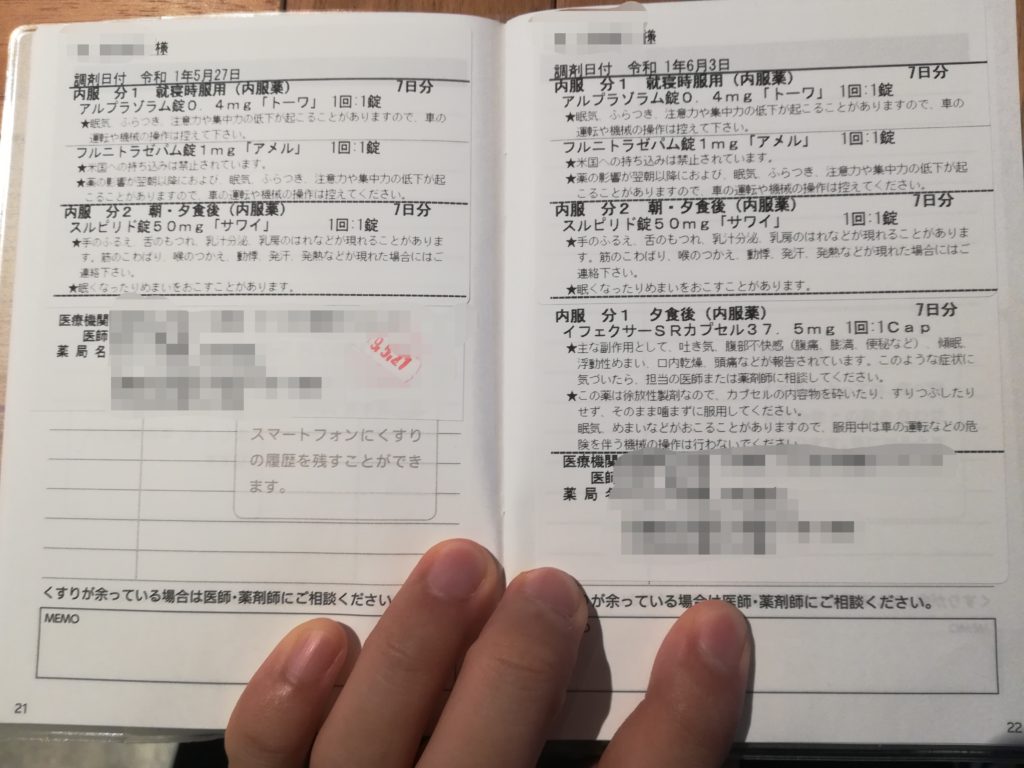 様
調剤日付 令和 1年5月27日
内服 分1 就寝時服用（内服薬） 7日分
アルプラゾラム錠0．4mg「トーワ」 1回:1錠
★眠気、ふらつき、注意力や集中力の低下が起こることがありますので、車の
運転や機械の操作は控えて下さい。
フルニトラゼパム錠1mg「アメル」 1回:1錠
★米国への持ち込みは禁止されています。
★薬の影響が翌朝以降におよび、眠気、ふらつき、注意力や集中力の低下が
起こることがありますので、車の運転や機械の操作は控えてください。
内服 分2 朝・夕食後（内服薬） 7日分
スルピリド錠50mg「サワイ」 1回:1錠
★手のふるえ、舌のもつれ、乳汁分泌、乳房のはれなどが現れることがありま
す。筋のこわばり、喉のつかえ、動悸、発汗、発熱などが現れた場合にはご
連絡下さい。
★眠くなったりめまいをおこすことがあります。
医療機関
医師
薬局名
スマートフォンにくすり
の履歴を残すことができ
ます。
くすりが余っている場合は医師・薬剤師にご相談ください
MEMO
21
様
調剤日付 令和 1年6月3日
内服 分1 就寝時服用（内服薬） 7日分
アルプラゾラム錠0．4mg「トーワ」 1回:1錠
★眠気、ふらつき、注意力や集中力の低下が起こることがありますので、車の
運転や機械の操作は控えて下さい。
フルニトラゼパム錠1mg「アメル」 1回:1錠
★米国への持ち込みは禁止されています。
★薬の影響が翌朝以降におよび、眠気、ふらつき、注意力や集中力の低下が起
こることがありますので、車の運転や機械の操作は控えてください。
内服 分2 朝・夕食後（内服薬） 7日分
スルピリド錠50mg「サワイ」 1回:1錠
★手のふるえ、舌のもつれ、乳汁分泌、乳房のはれなどが現れることがありま
す。筋のこわばり、喉のつかえ、動悸、発汗、発熱などが現れた場合にはご
連絡下さい。
★眠くなったりめまいをおこすことがあります。
内服 分1 夕食後（内服薬） 7日分
イフェクサーSRカプセル37．5mg 1回:1Cap
★主な副作用として、吐き気、腹部不快感（腹痛、膨満、便秘など）、傾眠、
浮動性めまい、口内乾燥、頭痛などが報告されています。このような症状に
気づいたら、担当の医師または薬剤師に相談してください。
★この薬は徐放性製剤なので、カプセルの内容物を砕いたり、すりつぶしたり
せず、そのまま噛まずに服用してください。
眠気、めまいなどがおこることがありますので、服用中は車の運転などの危
険を伴う機械の操作は行わないでください。
医療機関
医師
薬局名
が余っている場合は医師・薬剤師にご相談ください。
22